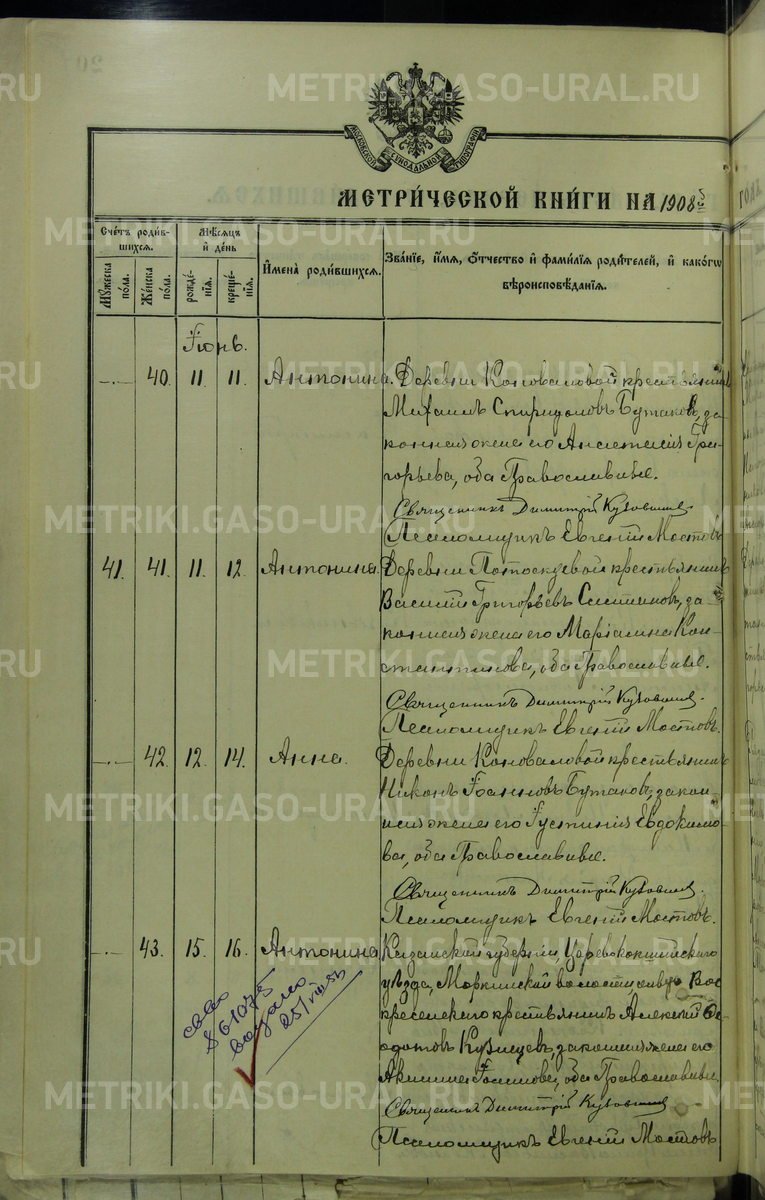 МОСКОВСКОЙ СУНОДАЛЬНОЙ ТИПОГРАФІИ
МЕТРИ́ЧЕСКОЙ КНИ́ГИ НА 1908
Сче́тъ роди́в-
шихся.
Мѣ́сяцъ
и҆ де́нь
И҆мена̀ роди́вшихся.
Зва́нїе, и҆́мя, ѻ҆́тчество и҆ фами́лїя роди́телей, и҆ како́гѡ
вѣроисповѣ́данїя.
Мꙋ́жеска по́ла.
Же́нска по́ла.
рожде́нїя.
креще́нїя.
Іюнь.
—.— 40. 11. 11. Антонина. Деревни Коноваловой крестьянинъ
Михаилъ Спиридоновъ Бутаковъ, за-
конная жена его Анастасія Гри-
горьева, оба Православные.
Священникъ Димитрій
Псаломщикъ Евгеній Мостовъ
41. 41. 11. 12. Антонина. Деревни Потоскуевой крестьянинъ
Василій Григорьевъ за-
конная жена его Маріамна Кон-
стантинова, оба Православные.
Священникъ Димитрій
Псаломщикъ Евгеній Мостовъ.
—.— 42. 12. 14. Анна. Деревни Коноваловой крестьянинъ
Никонъ Іоанновъ Бутаковъ, закон-
ная жена его Іустинія Евдокимо-
ва, оба Православные.
Священникъ Димитрій
Псаломщикъ Евгеній Мостовъ.
—.— 43. 15. 16. Антонина Казанской губерніи, Царевококшайского
уѣзда, Моркинской волости, села Вос-
кресенского крестьянинъ Алексій Ѳе-
одотовъ Кузнецовъ, законная жена его
Акилина Іоаннова, оба Православные.
Священникъ Димитрій
Псаломщикъ Евгеній Мостовъ
выдано
METRIKI.GASO-URAL.RU